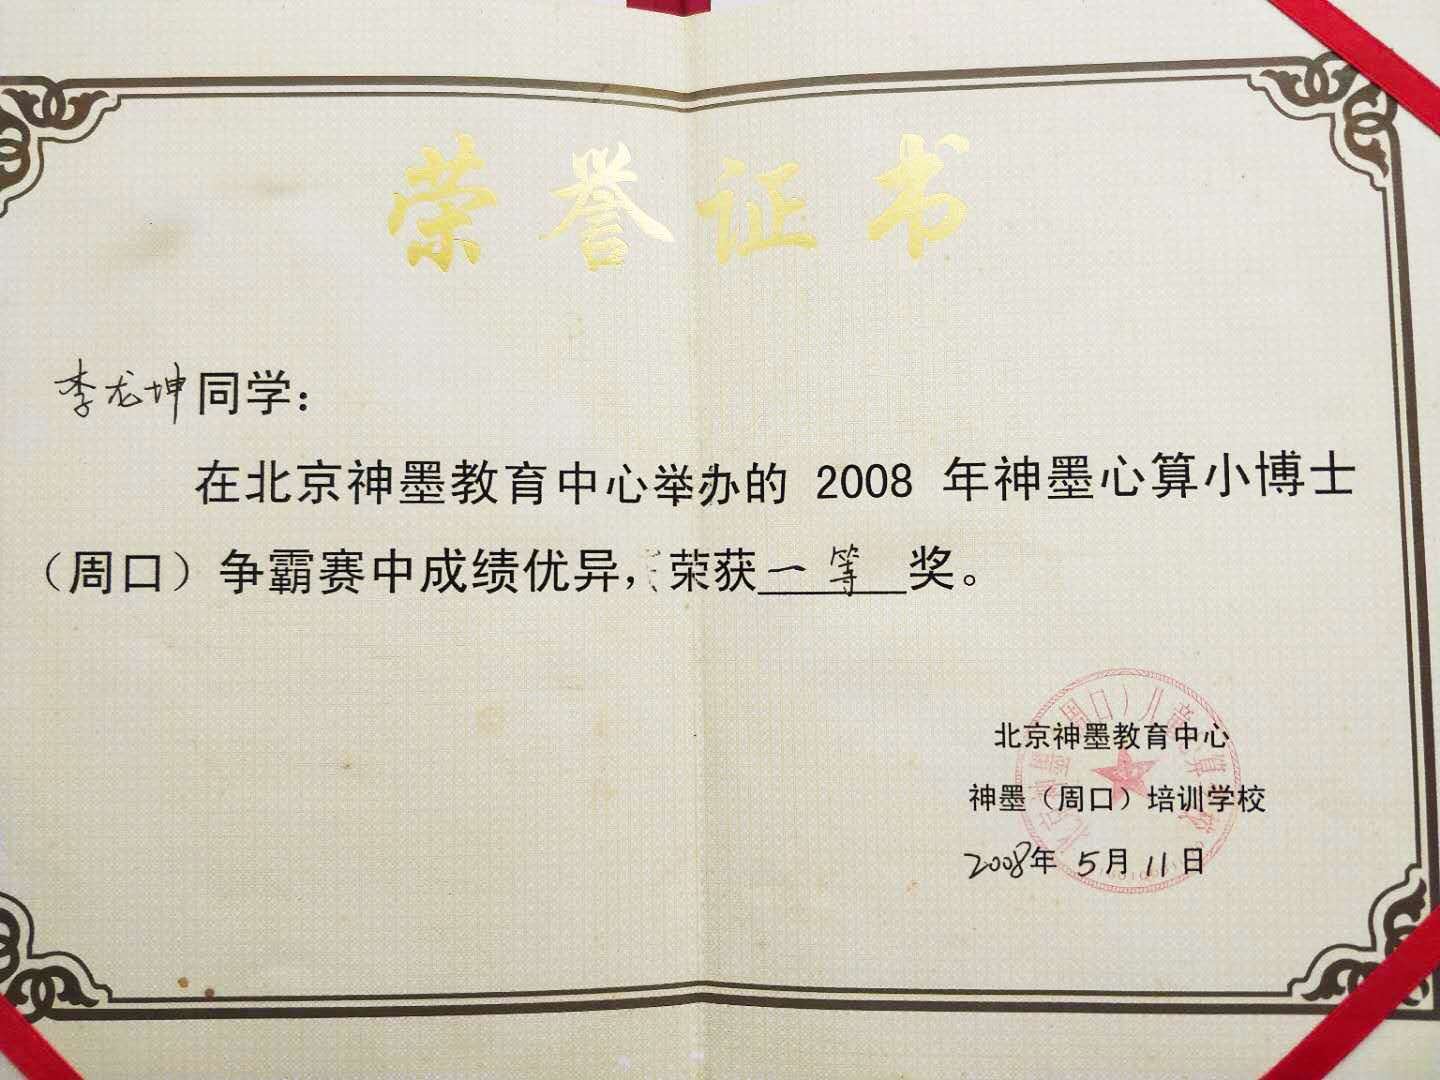 荣誉证书
李龙坤同学：
在北京神墨教育中心举办的 2008 年神墨心算小博士
（周口）争霸赛中成绩优异，荣获一等奖。
北京神墨教育中心
神墨（周口）培训学校
2008年 5月 11日